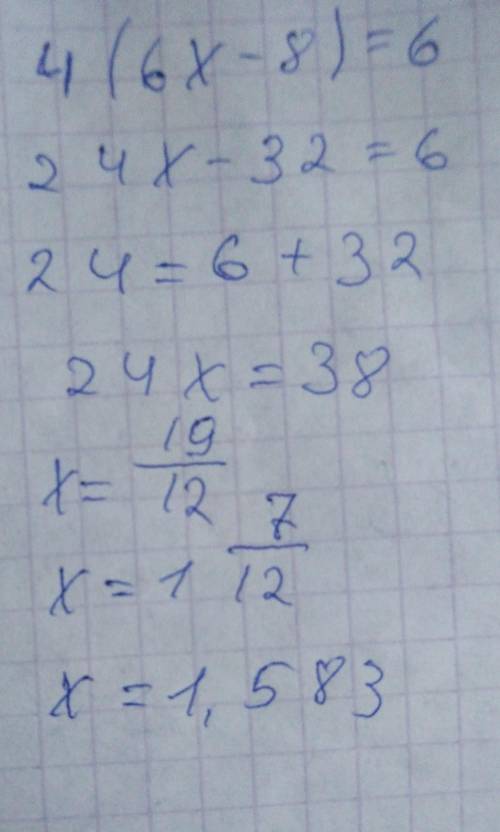 4(6x-8)=6
24x-32=6
24=6+32
24x=38
x=19/12
x=1 7/12
x=1,583